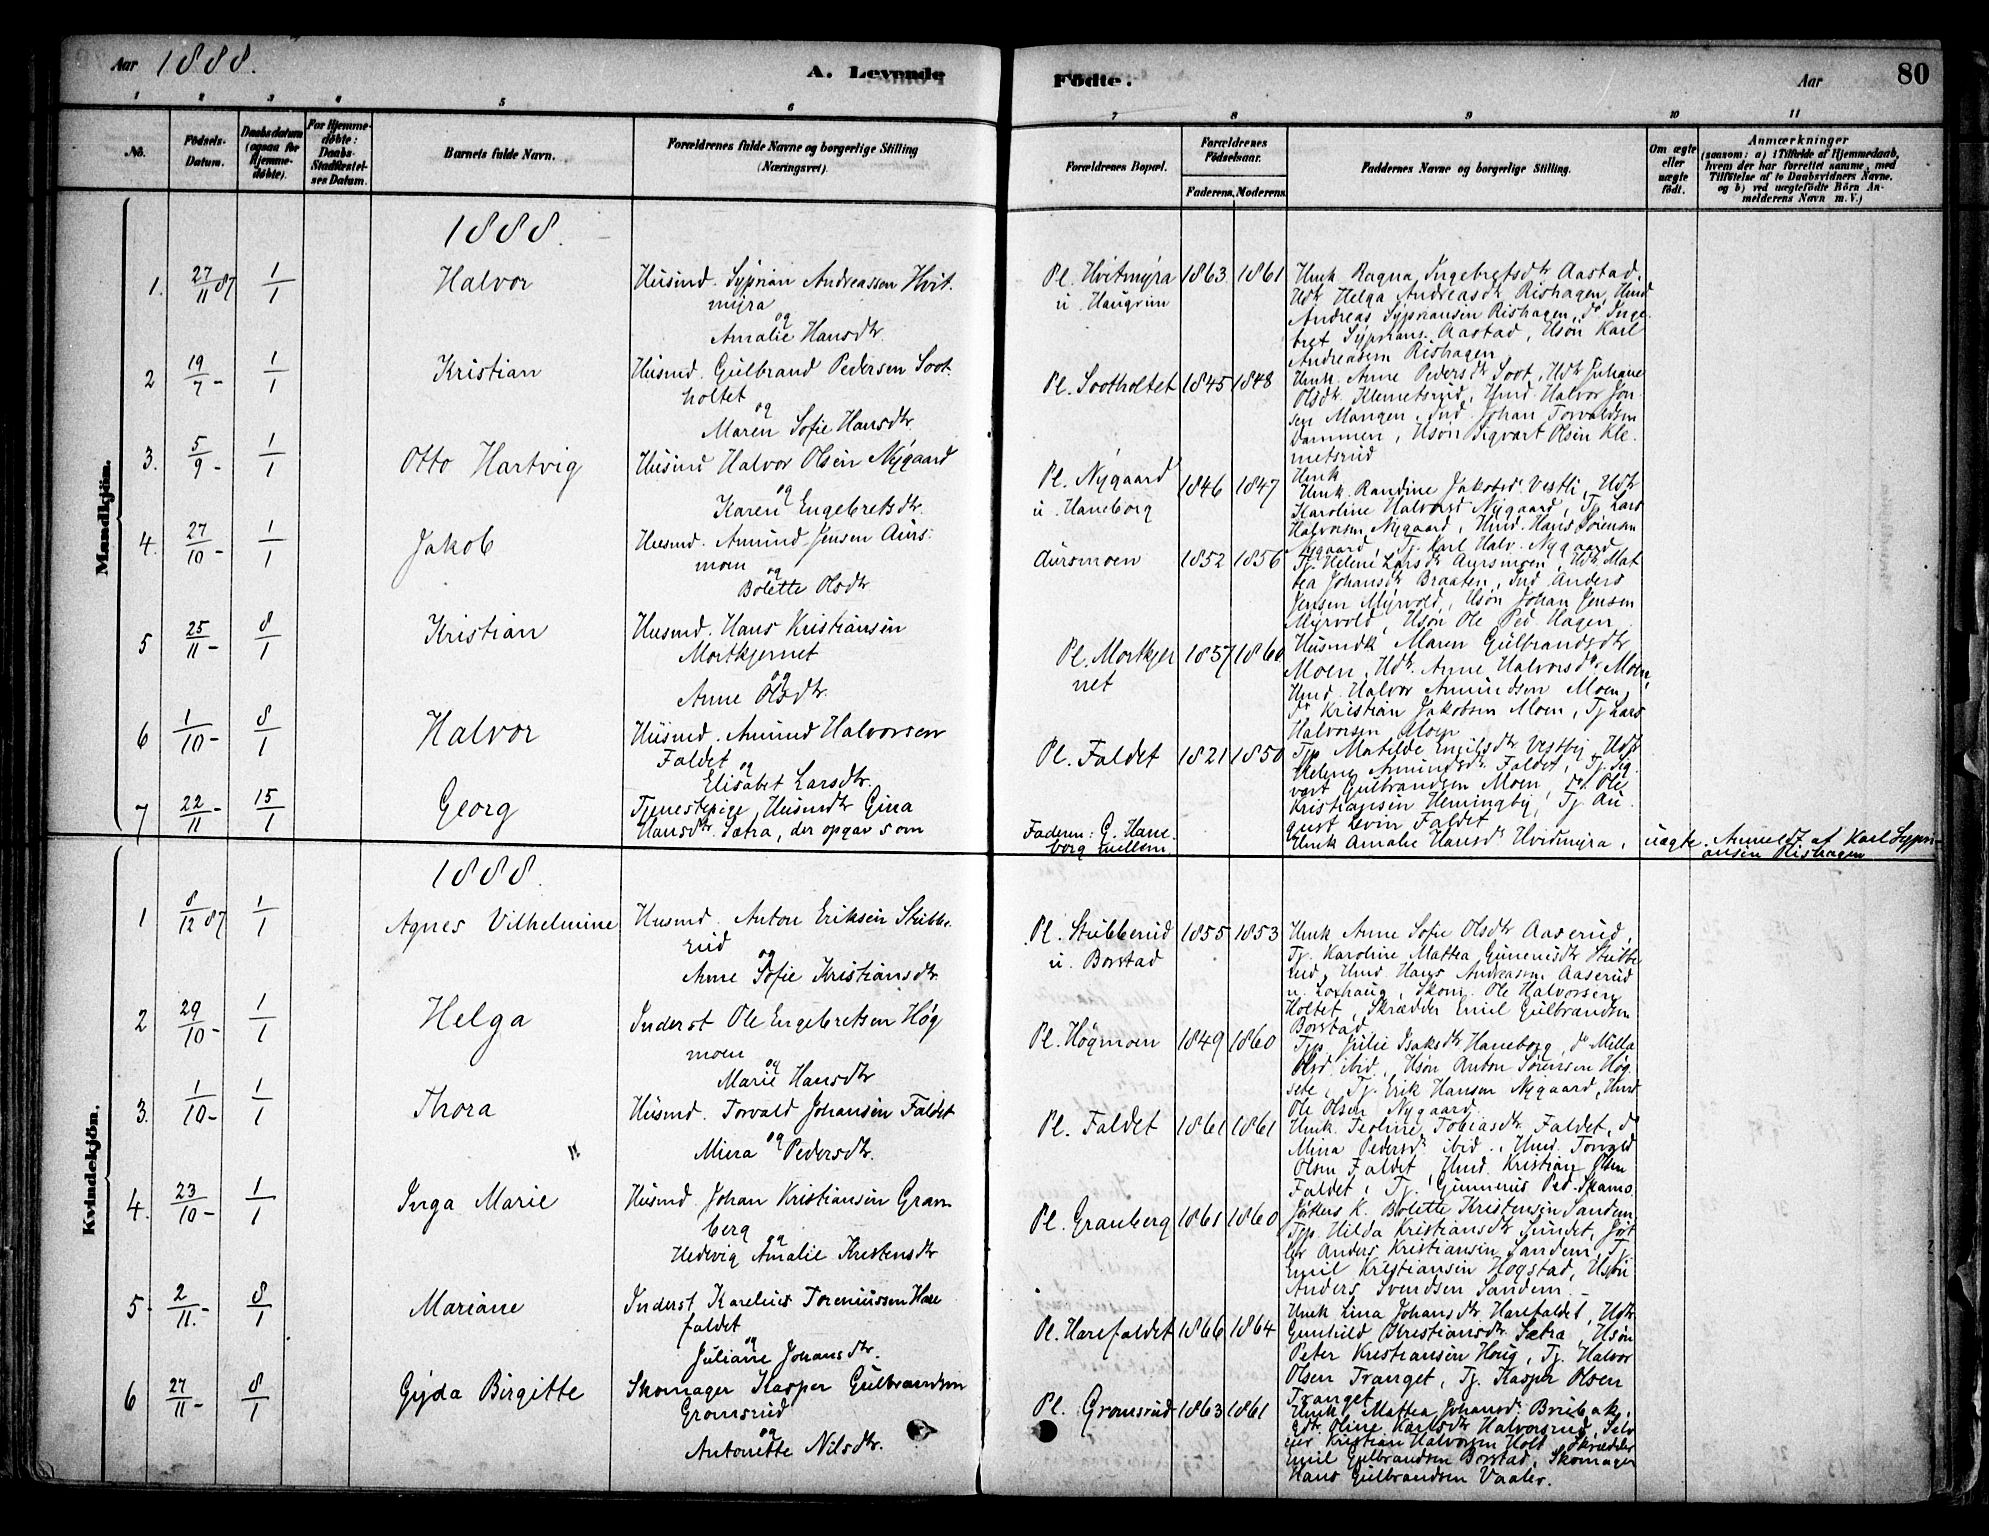 Aar 1888.
A. Levende
Födte.
Aar
80
1 2 3 4 5 6 7 8 9 10 11
No.
Födsels-
Datum.
Daabsdatum
(ogsaa for
Hjemme-
døbte).
For Hjemme-
døbte:
Daabs-
Stadfæstel-
ses Datum.
Barnets fulde Navn.
Forældrenes fulde Navne og borgerlige Stilling
(Næringsvei).
Forældrenes Bopæl.
Forældrenes
Födselsaar.
Faderens. Moderens.
Faddernes Navne og borgerlige Stilling.
Om ægte
eller
uægte
födt.
Anmærkninger
(saasom: a) i Tilfælde af Hjemmedaab,
hvem der har forrettet samme, med
Tilföielse af to Daabsvidners Navne.
og b) ved uægtefödte Börn An-
melderens Navn m. V.)
Mandkjön.
1888.
1. 27/11 87 1/1 Halvor
Husmd. Syprian Andreassen Hvit.
myra
og
Amalie Hansdtr.
Pl. Hvitmyra
u. Haugrim
1863 1861
Hmk Ragna Ingebretsdtr Aastad.
Hdtr Helga Andreasdtr Rishagen, Hmd
Andreas Sypriansen Rishagen, do Inge-
bret Syprians. Aastad, Hsøn Karl
Andreasen Rishagen
2 19/7 - 1/1 Kristian
Husmd. Gulbrand Pedersen Soot.
holtet
og
Maren Sofie Hansdtr.
Pl. Sootholtet 1845 1848
Hmk. Anne Pedersdtr Soot, Hdtr Juhane
Olsdtr. Klemetsrud, Hmd Halvor Jon-
sen Mangen, Ind. Johan Torvaldsen
Dammen, Hsøn Sigvart Olsen Kle-
metsrud
3. 5/9 - 1/1 Otto Hartvig
Husmd Halvor Olsen Nygaard
og
Karen Engebretsdtr.
Pl. Nygaard
u. Haneborg
1846 1847
Hmk
Hmk. Randine Jakobsd. Vestli, Hdtr
Karoline Halvorsd Nygaard, Tj. Lars
Halvorsen Nygaard, Hmd. Hans Sørensen
Nygaard, Tj. Karl Halv. Nygaard
4. 27/10 - 1/1 Jakob
Husmd. Amund Jensen Aurs-
moen
og
Bolette Olsdtr
Aursmoen 1852 1856
Tj. Helene Larsdtr Aursmoen, Hdtr Mat
tea Johansdtr Braaten, Ind Anders
Jensen Myrvold, Hsøn Johan Jensen
Myrvold, Hsøn Ole Ped Hagen
5 25/11 - 8/1 Kristian
Husmd. Hans Kristiansen
Mortkjernet
og
Anne Olsdtr.
Pl. Mortkjer
net
1857 1860
Husmdk Maren Gulbrandsdtr
Moen, Hdtr. Anne Halvorsdtr Moen,
Hmd. Halvor Amundsen Moen,
do Kristian Jakobsen Moen, Tj Lars
Halvorsen Moen
6 1/10 - 8/1 Halvor
Husmd. Amund Halvorsen
Faldet
og
Elisabet Larsdtr.
Pl. Faldet 1821 1850
Tjp Matilde Engilsdtr Vestby, Hdtr
Helene Amundsdtr Faldet, Tj. Sig-
vart Gulbrandsen Moen, do Ole
Kristiansen Hemingby, Tj Au-
gust Levin Faldet
7 22/11 15/1 Georg
Tjenestepige Husmdtr Gina
Hansdtr. Sætra, der opgav som
Faderen: G. Hane-
borg mellem.
Hmk Amalie Hansd. Hvidmyra,
uægte. Anmeldt af Karl Sypri-
ansen Rishagen
Kvindekjön.
1888.
1 8/12 87 1/1 Agnes Vilhelmine
Husmd. Anton Eriksen Stubbe-
rud
og
Anne Sofie Kristiansdtr.
Pl. Stubberud
u. Borstad
1855 1853
Hmk Anne Sofie Olsdtr Aaserud,
Tj. Karoline Mattea Gunerusdtr Stubbe
rud, Hmd. Hans Andreasen Aaserud
u. Loshaug, Skom. Ole Halvorsen
Holtet, Skrædder Emil Gulbrandsen
Borstad
2 29/10 - 1/1 Helga
Inderst Ole Engebretsen Høg
moen
og
Marie Hansdtr
Pl. Høgmoen 1849 1860
Tjp Julie Isaksdtr Haneborg, do Milla
Olsd ibid, Hsøn Anton Sørensen Høg
sete, Tj. Erik Hansen Nygaard, Hmd
Ole Olsen Nygaard
3. 1/10 - 1/1 Thora
Husmd. Torvald Johansen Faldet
og
Mina Pedersdtr.
Pl. Faldet 1861 1861
Hmk. Teoline Tobiasdtr Faldet, do
Mina Pedersdtr ibid., Hmd. Torvald
Olsen Faldet, Hmd. Kristian Olsen
Faldet, Tj. Gunnerius Ped. Skamo.
4. 23/10 - 1/1 Inga Marie
Husmd Johan Kristiansen Gran
berg
og
Hedevig Amalie Kristensdtr
Pl. Granberg 1861 1860
K. Bolette Kristensen Sandem
Tjp Hilda Kristiansdtr Lundet,
Anders Kristiansen Sandem, Tj.
Emil Kristiansen Hogstad, Hsøn
Anders Svendsen Sandem. -
5 - 2/11 - 8/1 Mariane
Inderst Karelius Toreniussen Hare
faldet
og
Juliane Johansdtr.
Pl. Harefaldet 1866 1864
Hmk Lina Johansdtr Harefaldet, Hdtr
Gunhild Kristiansdtr Sætra, Hsøn
Peter Kristiansen Houg, Tj. Halvor
Olsen Tranget, Tj. Kasper Olsen
Tranget
6 27/11 - 8/1 Gyda Birgitte
Skomager Kasper Gulbrandsen
Gromsrud
og
Antonette Nilsdtr.
Pl. Gromsrud 1863 1861
Hmk. Mattea Johansd. Breibak,
Gdr. Oline Karlsdtr Halvorsrud, Selv
eier Kristian Halvorsen Holt, Skrædder
Emil Gulbrandsen Borstad, Skomager
Hans Gulbrandsen Vaaler.